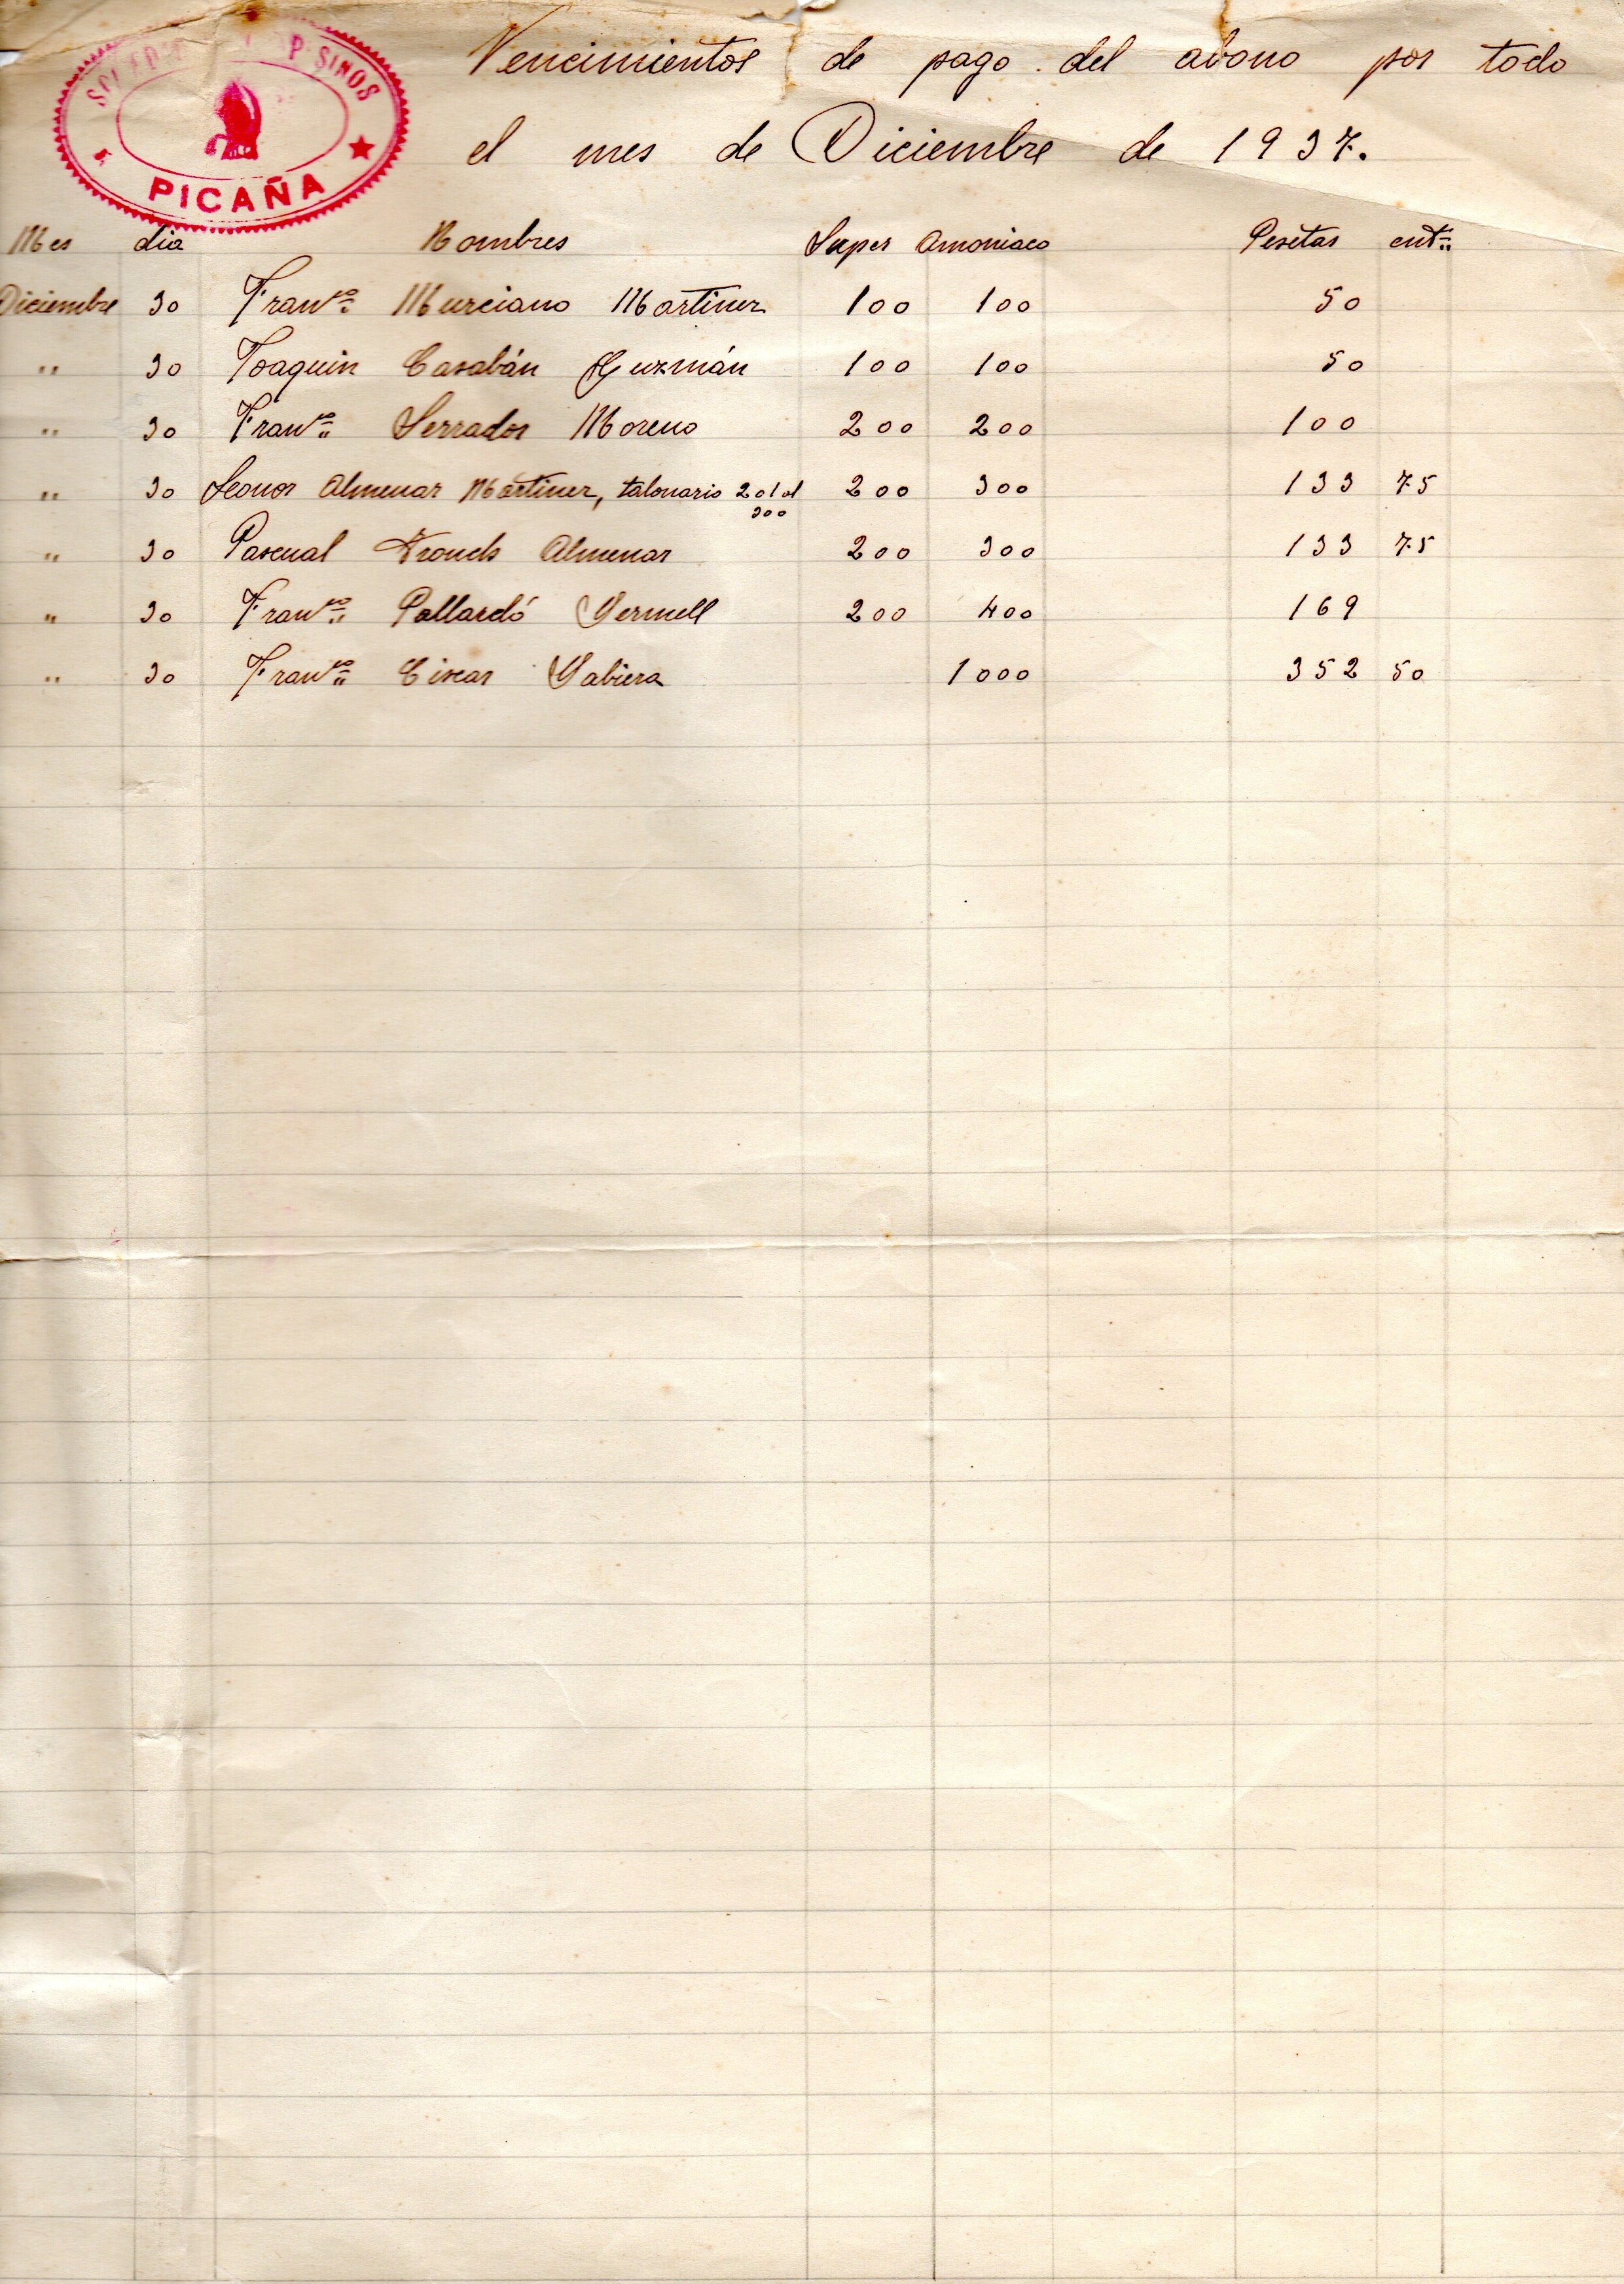 PICAÑA
Vencimientos de pago del abono por todo
el mes de Diciembre de 1937.
Mes dia Nombres Super Amoniaco Pesetas cnts
Diciembre 30 Franco Murciano Martinez 100 100 50
" 30 Joaquin Casabán Guzmán 100 100 50
" 30 Franco Serrador Moreno 200 200 100
" 30 Leonor Almenar Martinez, talonario 201 al 300 200 300 133 75
" 30 Pascual Almenar 200 300 133 75
" 30 Franco Pallardó 200 400 169
" 30 Franco Ciscar 1000 352 50